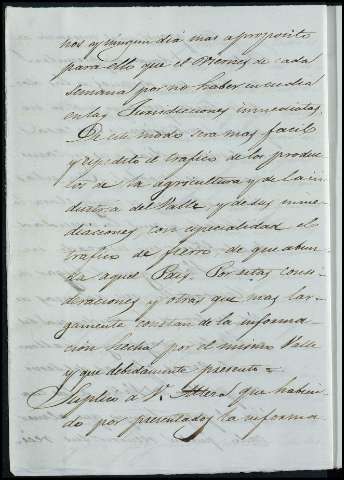 nos y ningun dia mas aproposito
para ello que el Viernes de cada
semana por no haber en cu dia
en las Jurisdicciones inmediatas.
De este modo sera mas facil
y espedito el trafico de los produc-
tos de la agricultura y de la in-
dustria del Valle, y de sus inme-
diaciones con especialidad el
trafico de fierro, de que abun-
da aquel Pais. Por estas consi-
deraciones y otras que mas lar-
gamente constan de la informa-
cion hecha por el mismo Valle
y que debidamente presento =
Suplico a V. Alteza que habien-
do por presentados la informa-